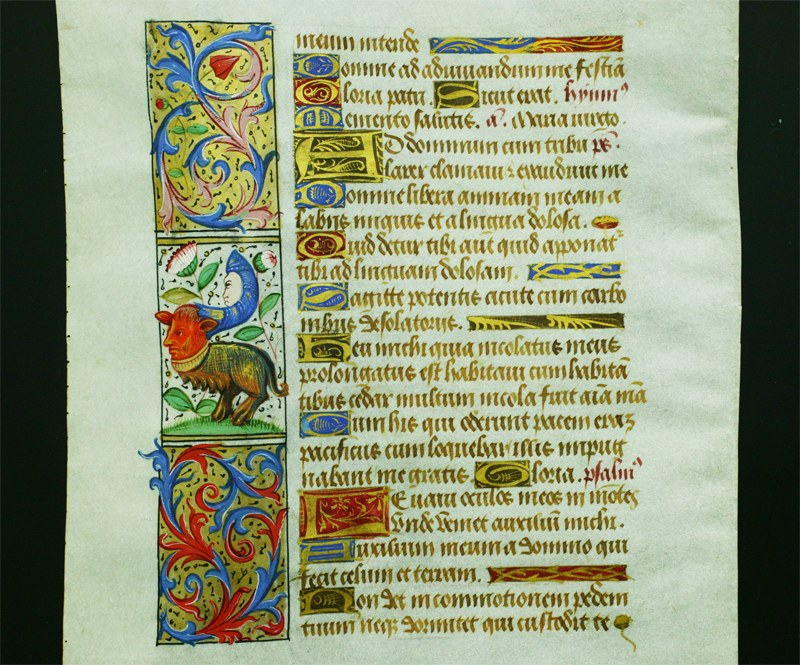 meum intende
Domine ad adiuvandum me festiā
Gloria patri. Sicut erat. hymnꝰ
Memento salutis. a. Maria iuveto.
AD dominum cum tribu ps.
larer clamavi ⁊ exaudivit me
Domine libera animam meam a
labijs iniquis et a lingua dolosa.
Quid detur tibi aut quid apponat
tibi ad linguam dolosam.
Sagitte potentis acute cum carbo
nibus desolatorijs.
Heu michi quia incolatus meus
prolongatus est habitavi cum habitā
tibus cedar multum incola fuit aīa mā
Cum his qui oderunt pacem eraʒ
pacificus cum loquebar illis impug
nabant me gratis. Gloria. psalmꝰ
LEvavi oculos meos in mōtes
Unde veniet auxilium michi.
Auxilium meum a domino qui
fecit celum et terram.
Non det in commotionem pedem
tuum neqʒ dormitet qui custodit te